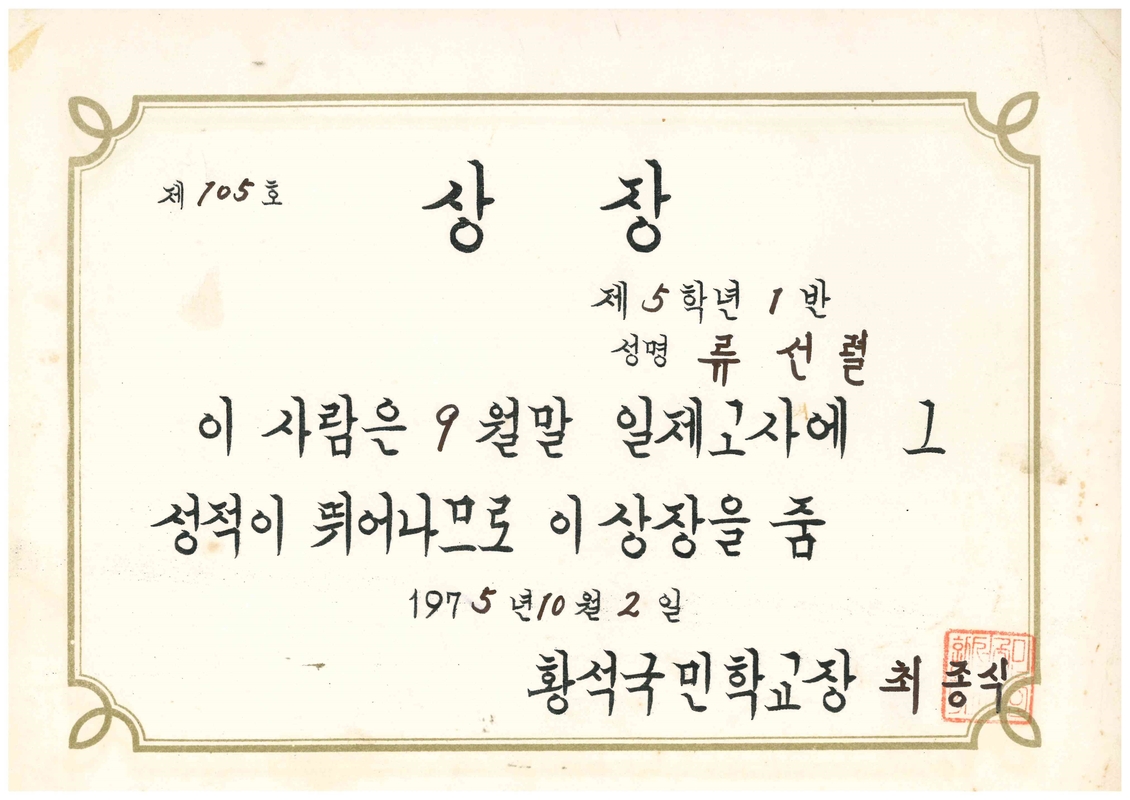 제 105 호
상 장
제 5 학년 1 반
성명 류 선 렬
이 사람은 9 월말 일제고사에 그
성적이 뛰어나므로 이 상장을 줌
1975 년 10 월 2 일
황석국민학교장 최 종식